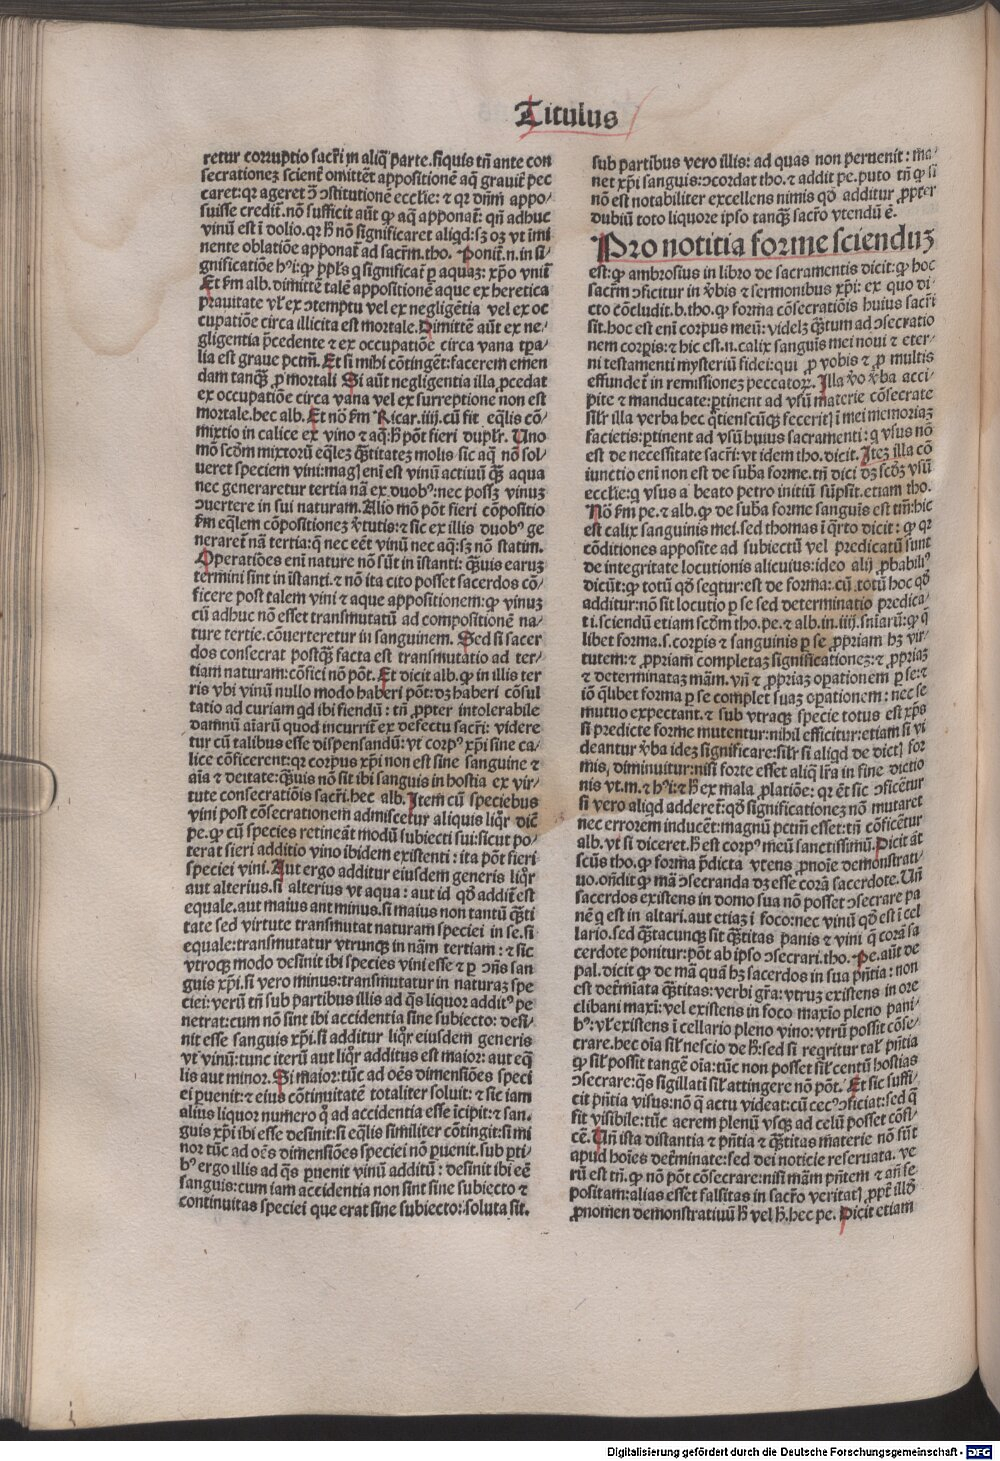 Titulus
retur corruptio sacri in aliq̄ parte. siquis tn̄ ante con
secrationez scient̄ omittēt appositionē aq̄ grauit̄ pec
caret: qr ageret ↄ̄ ↄstitutionē ecclie: ⁊ qr dn̄m appo⸗
suisse credit̄. nō sufficit aūt ꝙ aq̄ apponat̄: qn̄ adhuc
vinū est ī dolio. qr h̄ nō significaret aliqd: sꝫ oꝫ vt īmi
nente oblatiōe apponat̄ ad sacrm̄. tho. Ponit̄. n. in si⸗
gnificatiōe hꝰi: ꝙ pp̄ls q significat̄ ꝑ aquaꝫ: xp̄o vnit̄
Et ẜm alb. dimittē talē appositionē aque ex heretica
prauitate vl̓ ex ↄtemptu vel ex negligētia vel ex oc
cupatiōe circa illicita est mortale. Dimittē aūt ex ne⸗
gligentia p̄cedente ⁊ ex occupatiōe circa vana tp̄ra⸗
lia est graue pctm̄. Et si mihi cōtingēt: facerem emen
dam tanqꝫ ꝓ mortali Si aūt negligentia illa ꝓcedat
ex occupatiōe circa vana vel ex surreptione non est
mortale. hec alb. Et nō ẜm Ricar. iiij. cū fit eq̄lis cō⸗
mixtio in calice ex vino ⁊ aq̄: h̄ pōt fieri duplr̄. Uno
mō scdm̄ mixtorū eq̄leꝫ qꝫtitateꝫ molis sic aq̄ nō sol⸗
ueret speciem vini: magꝭ eni est vinū actiuū qꝫ aqua
nec generaretur tertia nā ex duobꝰ: nec possꝫ vinuꝫ
ↄuertere in sui naturam. Alio mō pōt fieri cōpositio
ẜm eq̄lem cōpositionez v̓tutis: ⁊ sic ex illis duobꝰ ge
neraret̄ nā tertia: q̄ nec eēt vinū nec aq̄: sꝫ nō statim.
Operatiōes eni nature nō sūt in īstanti: qꝫuis earuꝫ
termini sint in īstanti. ⁊ nō ita cito posset sacerdos cō⸗
ficere post talem vini ⁊ aque appositionem: ꝙ vinuꝫ
cū adhuc nō esset transmutatū ad compositionē na⸗
ture tertie. cōuerteretur in sanguinem. Sed si sacer
dos consecrat postqꝫ facta est transmutatio ad ter⸗
tiam naturam: cōfici nō pōt. Et dicit alb. ꝙ in illis ter
ris vbi vinū nullo modo haberi pōt: dꝫ haberi cōsul
tatio ad curiam qd ibi fiendū: tn̄ ꝓpter intolerabile
damnū aīarū quod incurrit̄ ex defectu sacri: videre
tur cū talibus esse dispensandū: vt corpꝰ xp̄i sine ca⸗
lice cōficerent: qr corpus xp̄i non est sine sanguine ⁊
aīa ⁊ deitate: qꝫuis nō sit ibi sanguis in hostia ex vir⸗
tute consecratiōis sacri. hec alb. Item cū speciebus
vini post cōsecrationem admiscetur aliquis liqr̄ dicē
pe. ꝙ cū species retineāt modū subiecti sui: sicut po⸗
terat fieri additio vino ibidem existenti: ita pōt fieri
speciei vini. Aut ergo additur eiusdem generis liqr̄
aut alterius. si alterius vt aqua: aut id qd̄ addit̄ est
equale. aut maius ant minus. si maius non tantū qꝫti
tate sed virtute transmutat naturam speciei in se. si
equale: transmutatur vtrunqꝫ in nām tertiam: ⁊ sic
vtroqꝫ modo desinit ibi species vini esse ⁊ ꝑ ↄn̄s san
guis xp̄i. si vero minus: transmutatur in naturaꝫ spe
ciei: verū tn̄ sub partibus illis ad q̄s liquor additꝰ pe
netrat: cum nō sint ibi accidentia sine subiecto: desi⸗
nit esse sanguis xp̄i. si additur liqr̄ eiusdem generis
vt vinū: tunc iterū aut liqr̄ additus est maior: aut eq̄
lis aut minor. Si maior: tūc ad oēs dimensiōes speci
ei ꝑuenit: ⁊ eius cōtinuitatē totaliter soluit: ⁊ sic iam
alius liquor numero q̄ ad accidentia esse īcipit: ⁊ san⸗
guis xp̄i ibi esse desinit: si eq̄lis similiter cōtingit: si mi
nor tūc ad oēs dimensiōes speciei nō ꝑuenit. sub ꝑti⸗
bꝰ ergo illis ad q̄s ꝑuenit vinū additū: desinit ibi eē
sanguis: cum iam accidentia non sint sine subiecto ⁊
continuitas speciei que erat sine subiecto: soluta sit.
sub partibus vero illis: ad quas non peruenit: ma⸗
net xp̄i sanguis: ↄcordat tho. ⁊ addit pe. puto tn̄ ꝙ si
nō est notabiliter excellens nimis qd̄ additur ꝓpter
dubiū toto liquore ipso tanqꝫ sacro vtendū ē.
Pro notitia forme scienduꝫ
est: ꝙ ambrosius in libro de sacramentis dicit: ꝙ hoc
sacrm̄ ↄficitur in v̓bis ⁊ sermonibus xp̄i: ex quo di⸗
cto cōcludit. b. tho. ꝙ forma cōsecratiōis huius sacri
sit. hoc est eni corpus meū: videlꝫ qꝫtum ad ↄsecratio
nem corpris: ⁊ hic est. n. calix sanguis mei noui ⁊ eter⸗
ni testamenti mysteriū fidei: qui ꝓ vobis ⁊ ꝓ multis
effundet̄ in remissionez peccatoꝝ. Illa v̓o v̓ba acci⸗
pite ⁊ manducate: ꝑtinent ad vsū materie cōsecrate
silr̄ illa verba hec qtienscūqꝫ feceritꝭ ī mei memoriaꝫ
facietis: ꝑtinent ad vsū huius sacramenti: q vsus nō
est de necessitate sacri: vt idem tho. dicit. Iteꝫ illa cō
iunctio eni non est de suba forme. tn̄ dici dꝫ scdꝫ vsū
ecclie: q vsus a beato petro initiū sūpsit. etiam tho.
Nō ẜm pe. ⁊ alb. ꝙ de suba forme sanguis est tm̄: hic
est calix sanguinis mei. sed thomas ī q̄rto dicit: ꝙ qr
cōditiones apposite ad subiectū vel predicatū sunt
de integritate locutionis alicuius: ideo alij ꝓbabiliꝰ
dicūt: ꝙ totū qd̄ seqtur: est de forma: cū totū hoc qd̄
additur: nō sit locutio ꝑ se sed determinatio predica⸗
ti. sciendū etiam scdm̄ tho. pe. ⁊ alb. in. iiij. sn̄iarū: ꝙ q̄
libet forma. s. corpris ⁊ sanguinis ꝑ se ꝓpriam hꝫ vir⸗
tutem: ⁊ ꝓpriam completaꝫ significationeꝫ: ⁊ ꝓpriaꝫ
⁊ determinataꝫ mām. vn̄ ⁊ ꝓpriaꝫ oꝑationem ꝑ se: ⁊
iō q̄libet forma ꝑ se complet suaꝫ oꝑationem: nec se
mutuo expectant. ⁊ sub vtraqꝫ specie totus est xp̄s
si predicte forme mutentur: nihil efficitur: etiam si vi
deantur v̓ba ideꝫ significare: silr̄ si aliqd de dictꝭ for
mis, diminuitur: nisi forte esset aliq̄ lr̄a in fine dictio
nis vt. m. ⁊ hꝰi: ⁊ h̄ ex mala ꝓlatiōe: qr ēt sic ↄficētur
si vero aliqd adderet̄: qd̄ significationeꝫ nō mutaret
nec errorem inducēt: magnū pctm̄ esset: tn̄ cōficētur
alb. vt si diceret. h̄ est corpꝰ meū sanctissimū. Dicit āt
scūs tho. ꝙ forma p̄dicta vtens ꝓnoīe demonstrati⸗
uo. ondit ꝙ mā ↄsecranda dꝫ esse corā sacerdote. Un̄
sacerdos existens in domo sua nō posset ↄsecrare pa
nē q est in altari. aut etiaꝫ ī foco: nec vinū qd̄ est ī cel
lario. sed qꝫtacunqꝫ sit qꝫtitas panis ⁊ vini q̄ corā sa
cerdote ponitur: pōt ab ipso ↄsecrari. tho. Pe. aūt de
pal. dicit ꝙ de mā quā hꝫ sacerdos in sua pn̄tia: non
est det̄miata qꝫtitas: verbi gr̄a: vtruꝫ existens in ore
clibani maxi: vel existens in foco maxio pleno pani⸗
bꝰ: vl̓ existens ī cellario pleno vino: vtrū possit cōse⸗
crare. hec oīa sil̓ nescio de h̄: sed si reqritur tal̓ pn̄tia
ꝙ sil̓ possit tangē oīa: tūc non posset sil̓ centū hostias
ↄsecrare: q̄s sigillatī sil̓ attingere nō pōt. Et sic suffi⸗
cit pn̄tia visus: nō q̄ actu videat: cū cecꝰ ↄficiat: sed q̄
sit visibile: tūc aerem plenū vsqꝫ ad celū posset cōsi⸗
cē. Un̄ ista distantia ⁊ pn̄tia ⁊ qꝫtitas materie nō sūt
apud hoīes det̄minate: sed dei noticie reseruata. ve
rū est tn̄. ꝙ nō pōt cōsecrare: nisi mām pn̄tem ⁊ an̄ se
positam: alias esset falsitas in sacro veritatꝭ ꝓpt̄ illd̄
ꝓnomen demonstratiuū h̄ vel h̄. hec pe. Dicit etiam
Digitalisierung gefördert durch die Deutsche Forschungsgemeinschaft - DFG